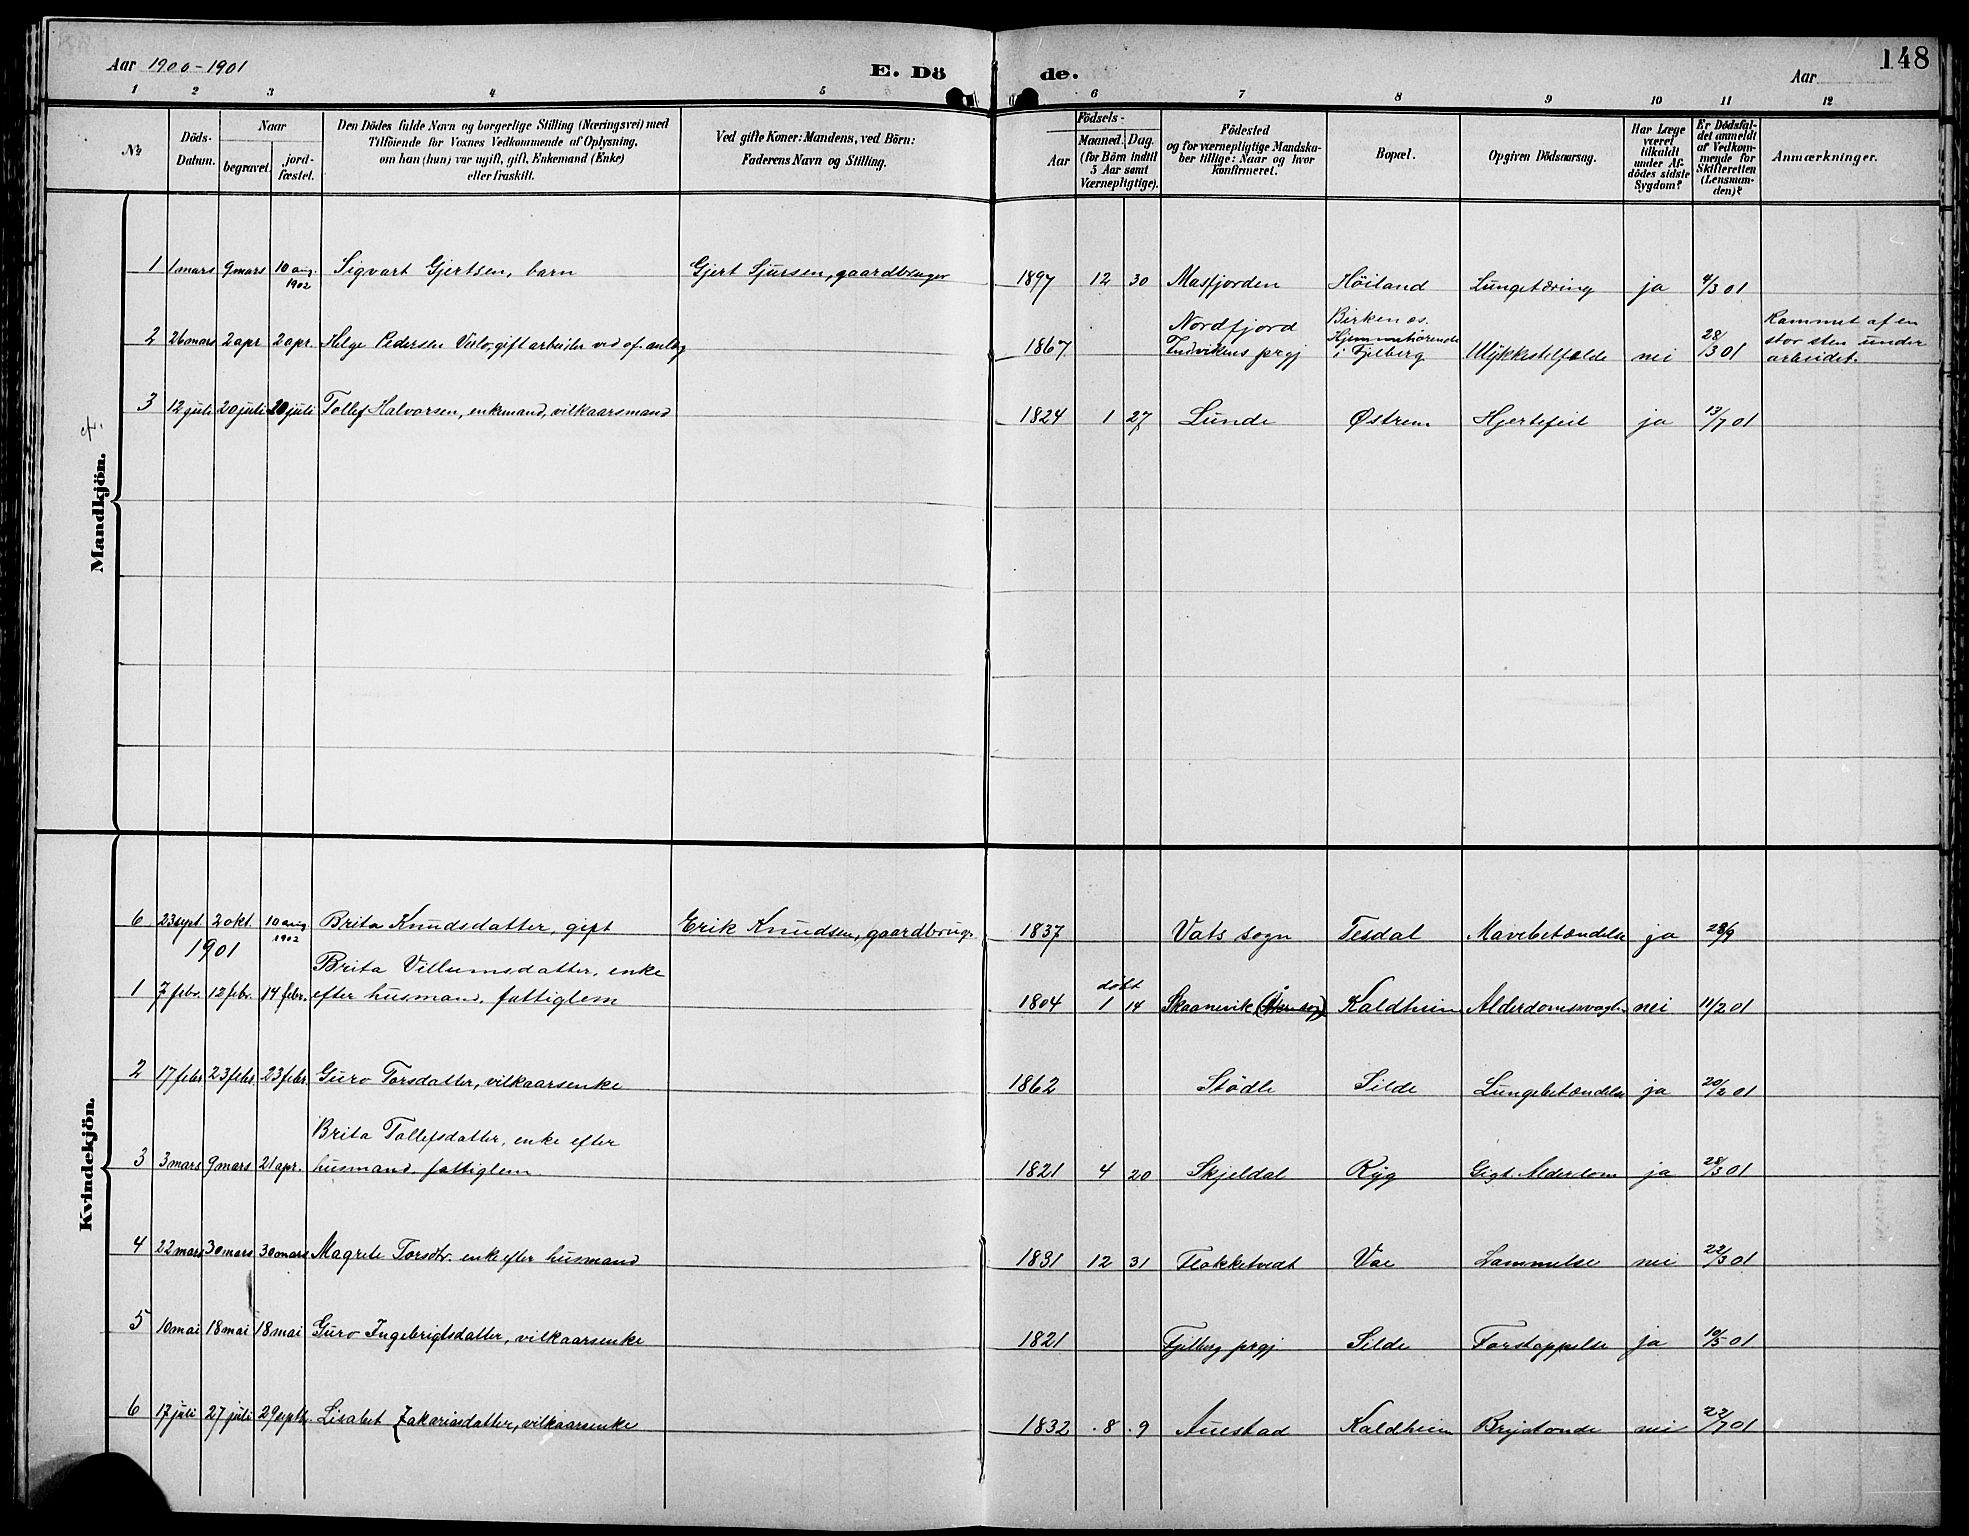 Aar 1900-1901
E. Dö
de.
Aar
148
1 2 3 4 5 6 7 8 9 10 11 12
№
Döds-
Datum.
Naar
begravet.
jord-
fæstet.
Den Dödes fulde Navn og borgerlige Stilling (Næringsvei) med
Tilföiende for Voxnes Vedkommende af Oplysning,
om han (hun) var ugift, gift, Enkemand (Enke)
eller fraskilt.
Ved gifte Koner: Mandens, ved Börn:
Faderens Navn og Stilling.
Födsels-
Aar
Maaned. Dag.
(for Börn indtil
5 Aar samt
Værnepligtige).
Födested
og for værnepligtige Mandska-
ber tillige: Naar og hvor
konfirmeret.
Bopæl.
Opgiven Dödsaarsag.
Har Læge
været
tilkaldt
under Af-
dödes sidste
Sygdom?
Er Dödsfal-
det anmeldt
af Vedkom-
mende for
Skifteretten
(Lensman-
den)?
Anmærkninger.
Mandkjön.
1 1 mars 9 mars 10 aug. 1902 Sigvart Gjertsen, barn Gjert Sjursen, gaardbruger 1897 12 30 Masfjorden Höiland Lungetæring ja 4/3 01
2 26 mars 2 apr 2 apr. Helge Pedersen gift arbeider ved 1867 Nordfjord Indvikens prgj Birkenæs. Hjemmehörende i Fjelberg Ulykkestilfælde nei 28/3 01 Rammet af en stor sten under arbeidet.
3 12 juli 20 juli 20 juli Tollef Halvorsen, enkemand, vilkaarsmand 1824 1 27 Lunde Østrem Hjertefeil ja 13/7 01
Kvindekjön.
6 23 sept. 2 okt. 10 aug 1902 Brita Knudsdatter, gift Erik Knudsen, gaardbrug. 1837 Vats sogn Tesdal Mavebetændelse ja 28/9
1901
Brita Villumsdatter, enke
1 7 febr. 12 febr. 14 febr. efter husmand, fattiglem 1804 døbt 1 14 Skaanevik Kaldheim Alderdomssvagh. nei 11/2 01
2 17 febr 23 febr. 23 febr. Guro Torsdatter, vilkaarsenke 1862 Stödle Silde Lungebetændelse ja 20/2 01
Brita Tollefsdatter, enke efter
3 3 mars 9 mars 21 apr. husmand, fattiglem 1821 4 20 Skjeldal Ryg Gigt. Alderdom ja 28/3 01
4 22 mars 30 mars 30 mars Magrete Torsdtr. enke efter husmand 1831 12 31 Flokketvedt Vae Lammelse nei 22/3 01
5 10 mai 18 mai 18 mai Guro Ingebrigtsdatter, vilkaarsenke 1821 Fjelberg prgj Silde Forstoppelse ja 10/5 01
6 17 juli 27 juli 29 septbr. Lisabet Zakariasdatter, vilkaarsenke 1832 8 9 Auestad Kaldheim Brystonde nei 22/7 01